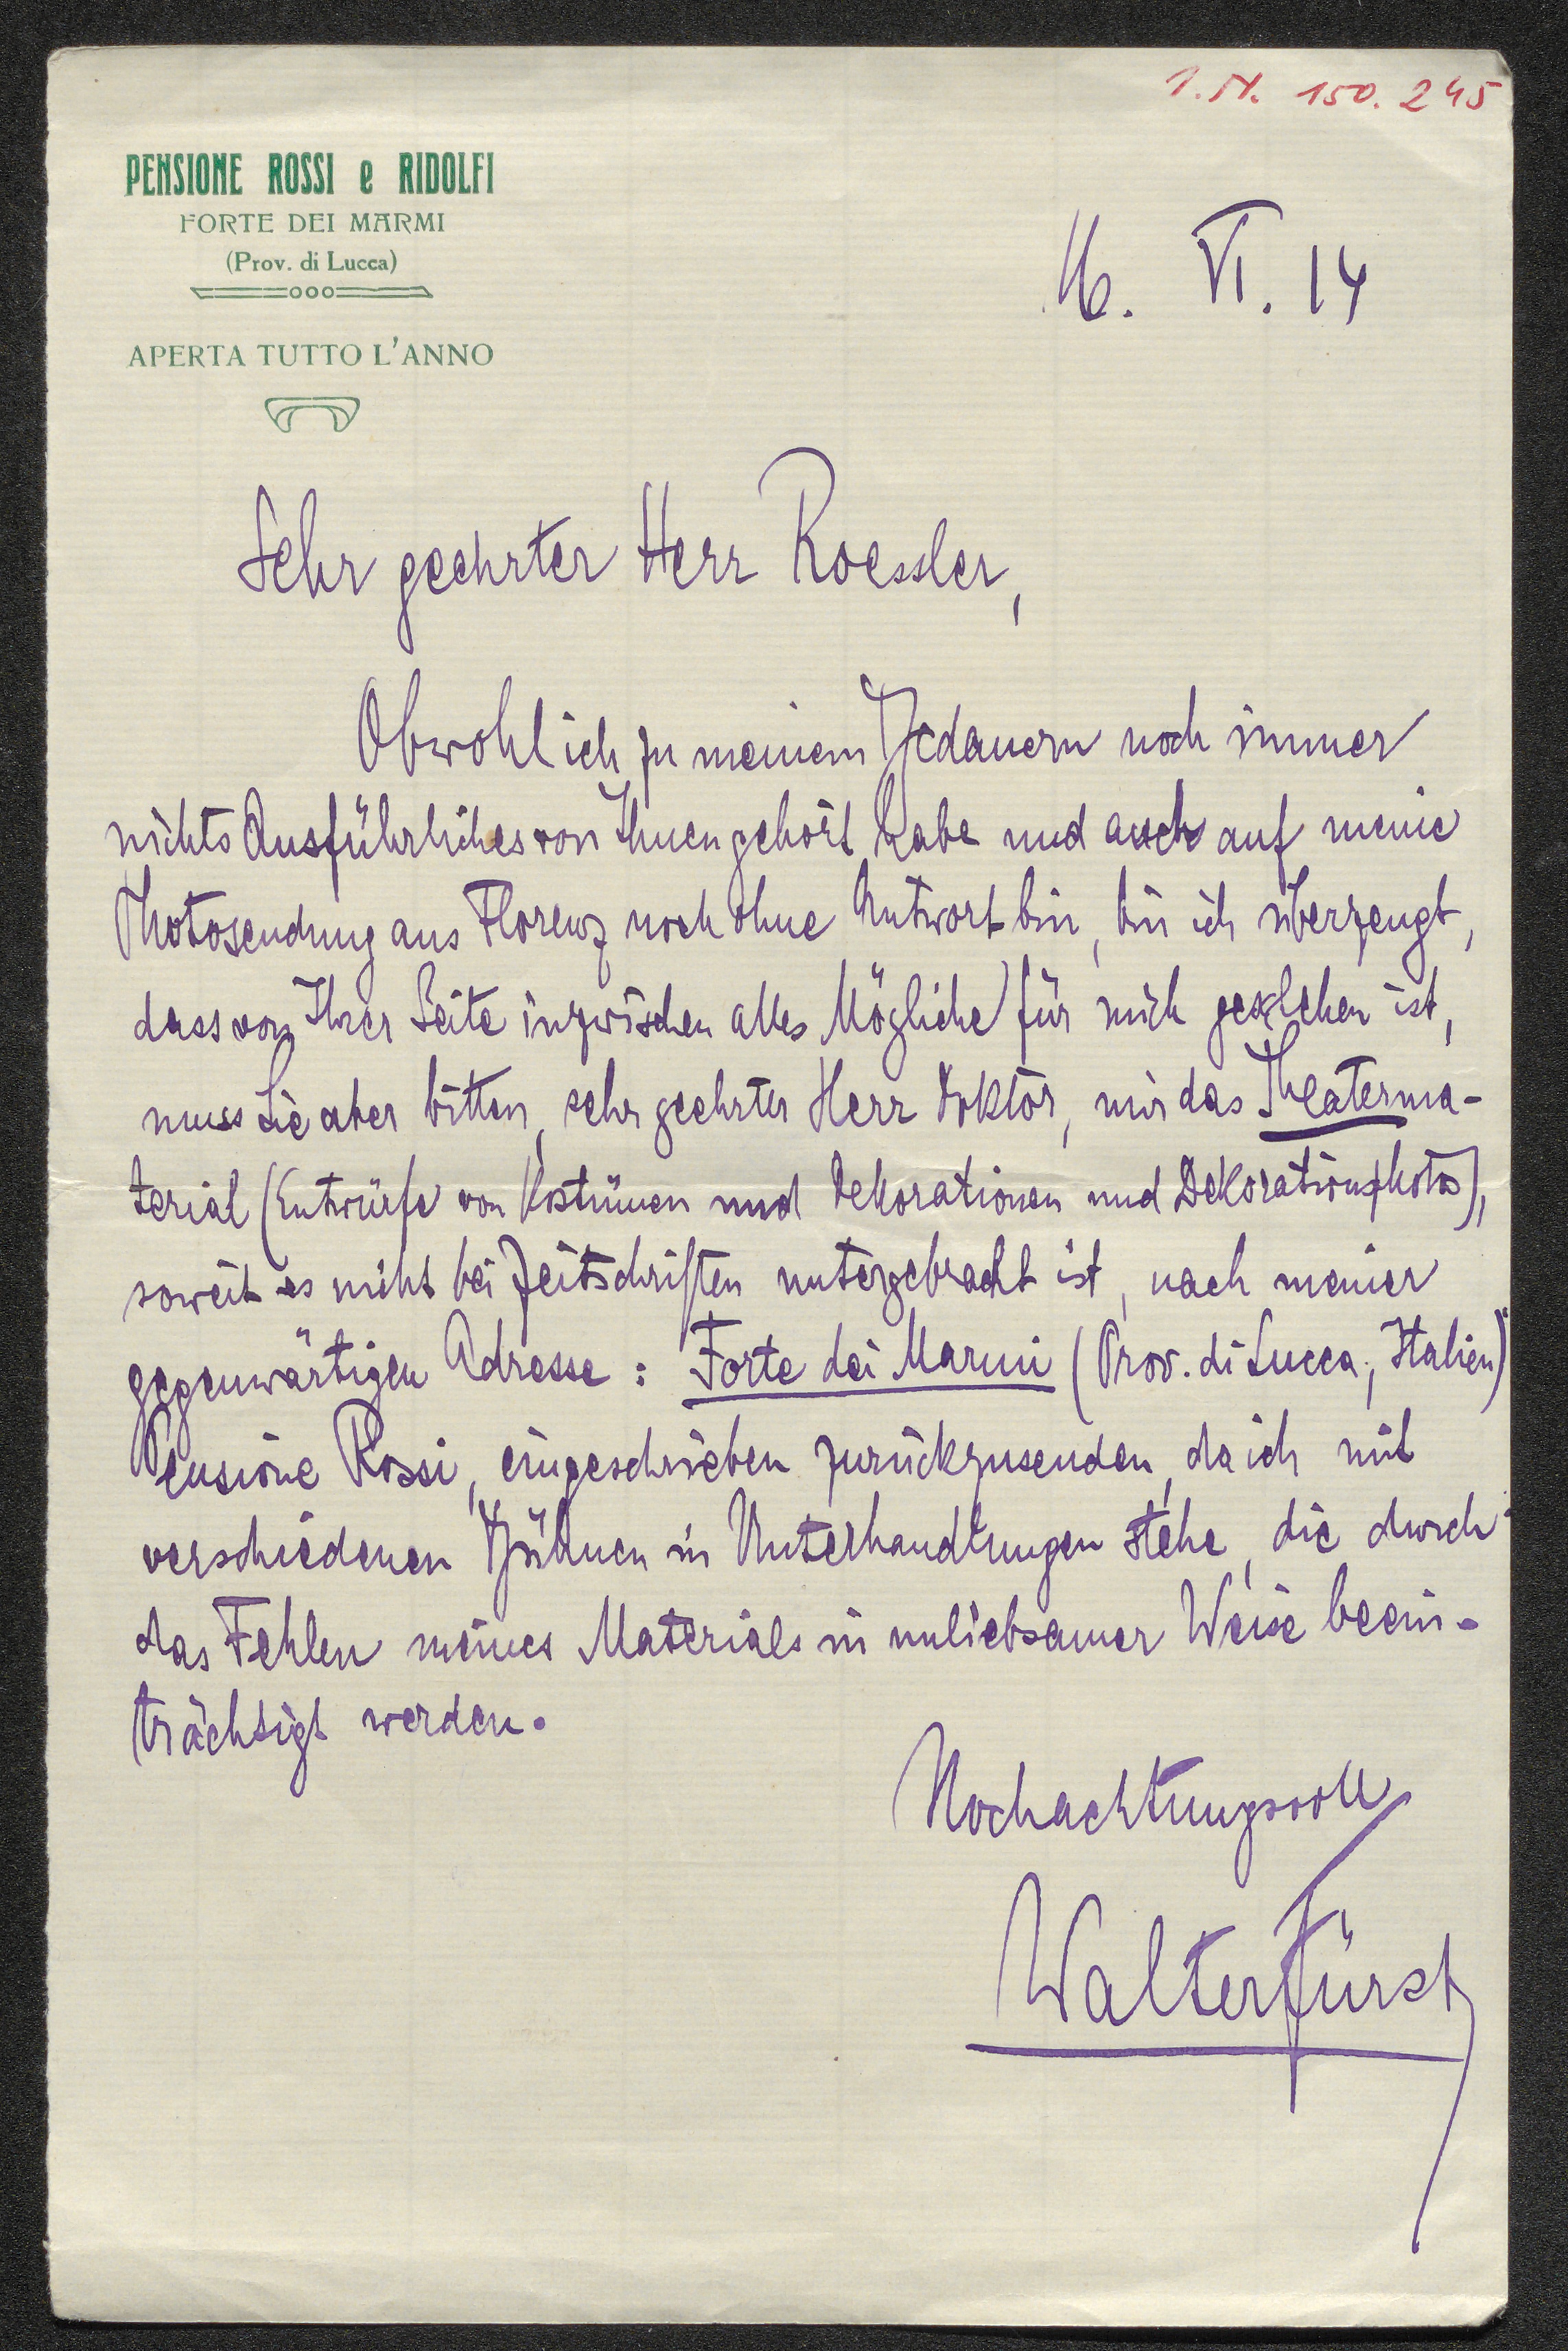 I.N. 150.245
PENSIONE ROSSI e RIDOLFI
FORTE DEI MARMI
(Prov. di Lucca)
APERTA TUTTO L'ANNO
16. VI. 14
Sehr geehrter Herr Roessler,
Obwohl ich zu meinem Bedauern noch immer
nichts Ausführliches von Ihnen gehört habe und auch auf meine
Photosendung aus Florenz noch ohne Antwort bin, bin ich überzeugt,
dass von Ihrer Seite inzwischen alles Mögliche für mich geschehen ist,
muss Sie aber bitten, sehr geehrter Herr Doktor, mir das Theaterma-
terial (Entwürfe von Kostümen und Dekorationen und Dekorationsphotos),
soweit es nicht bei Zeitschriften untergebracht ist, nach meiner
gegenwärtigen Adresse: Forte dei Marmi (Prov. di Lucca, Italien)
Pensione Rossi, eingeschrieben zurückzusenden, da ich mit
verschiedenen Bühnen in Unterhandlungen stehe, die durch
das Fehlen meines Materials in unliebsamer Weise beein-
trächtigt werden.
Hochachtungsvoll
Walter Fürst